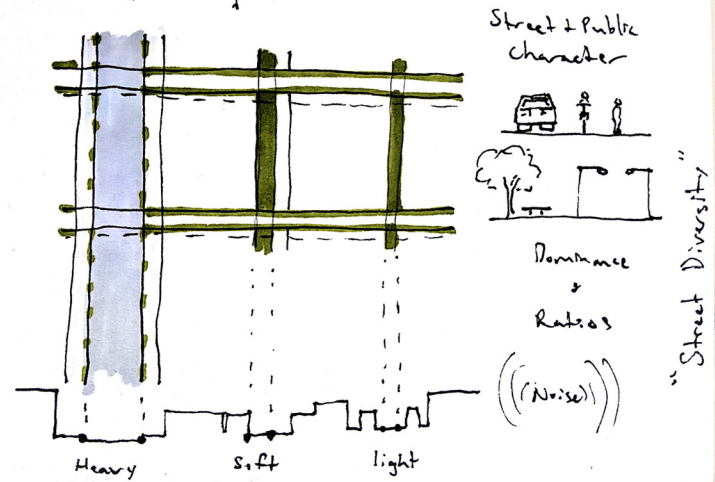 Street & Public
Character
Dominance
&
Ratios
((Noise))
"Street Diversity"
Heavy
Soft
light